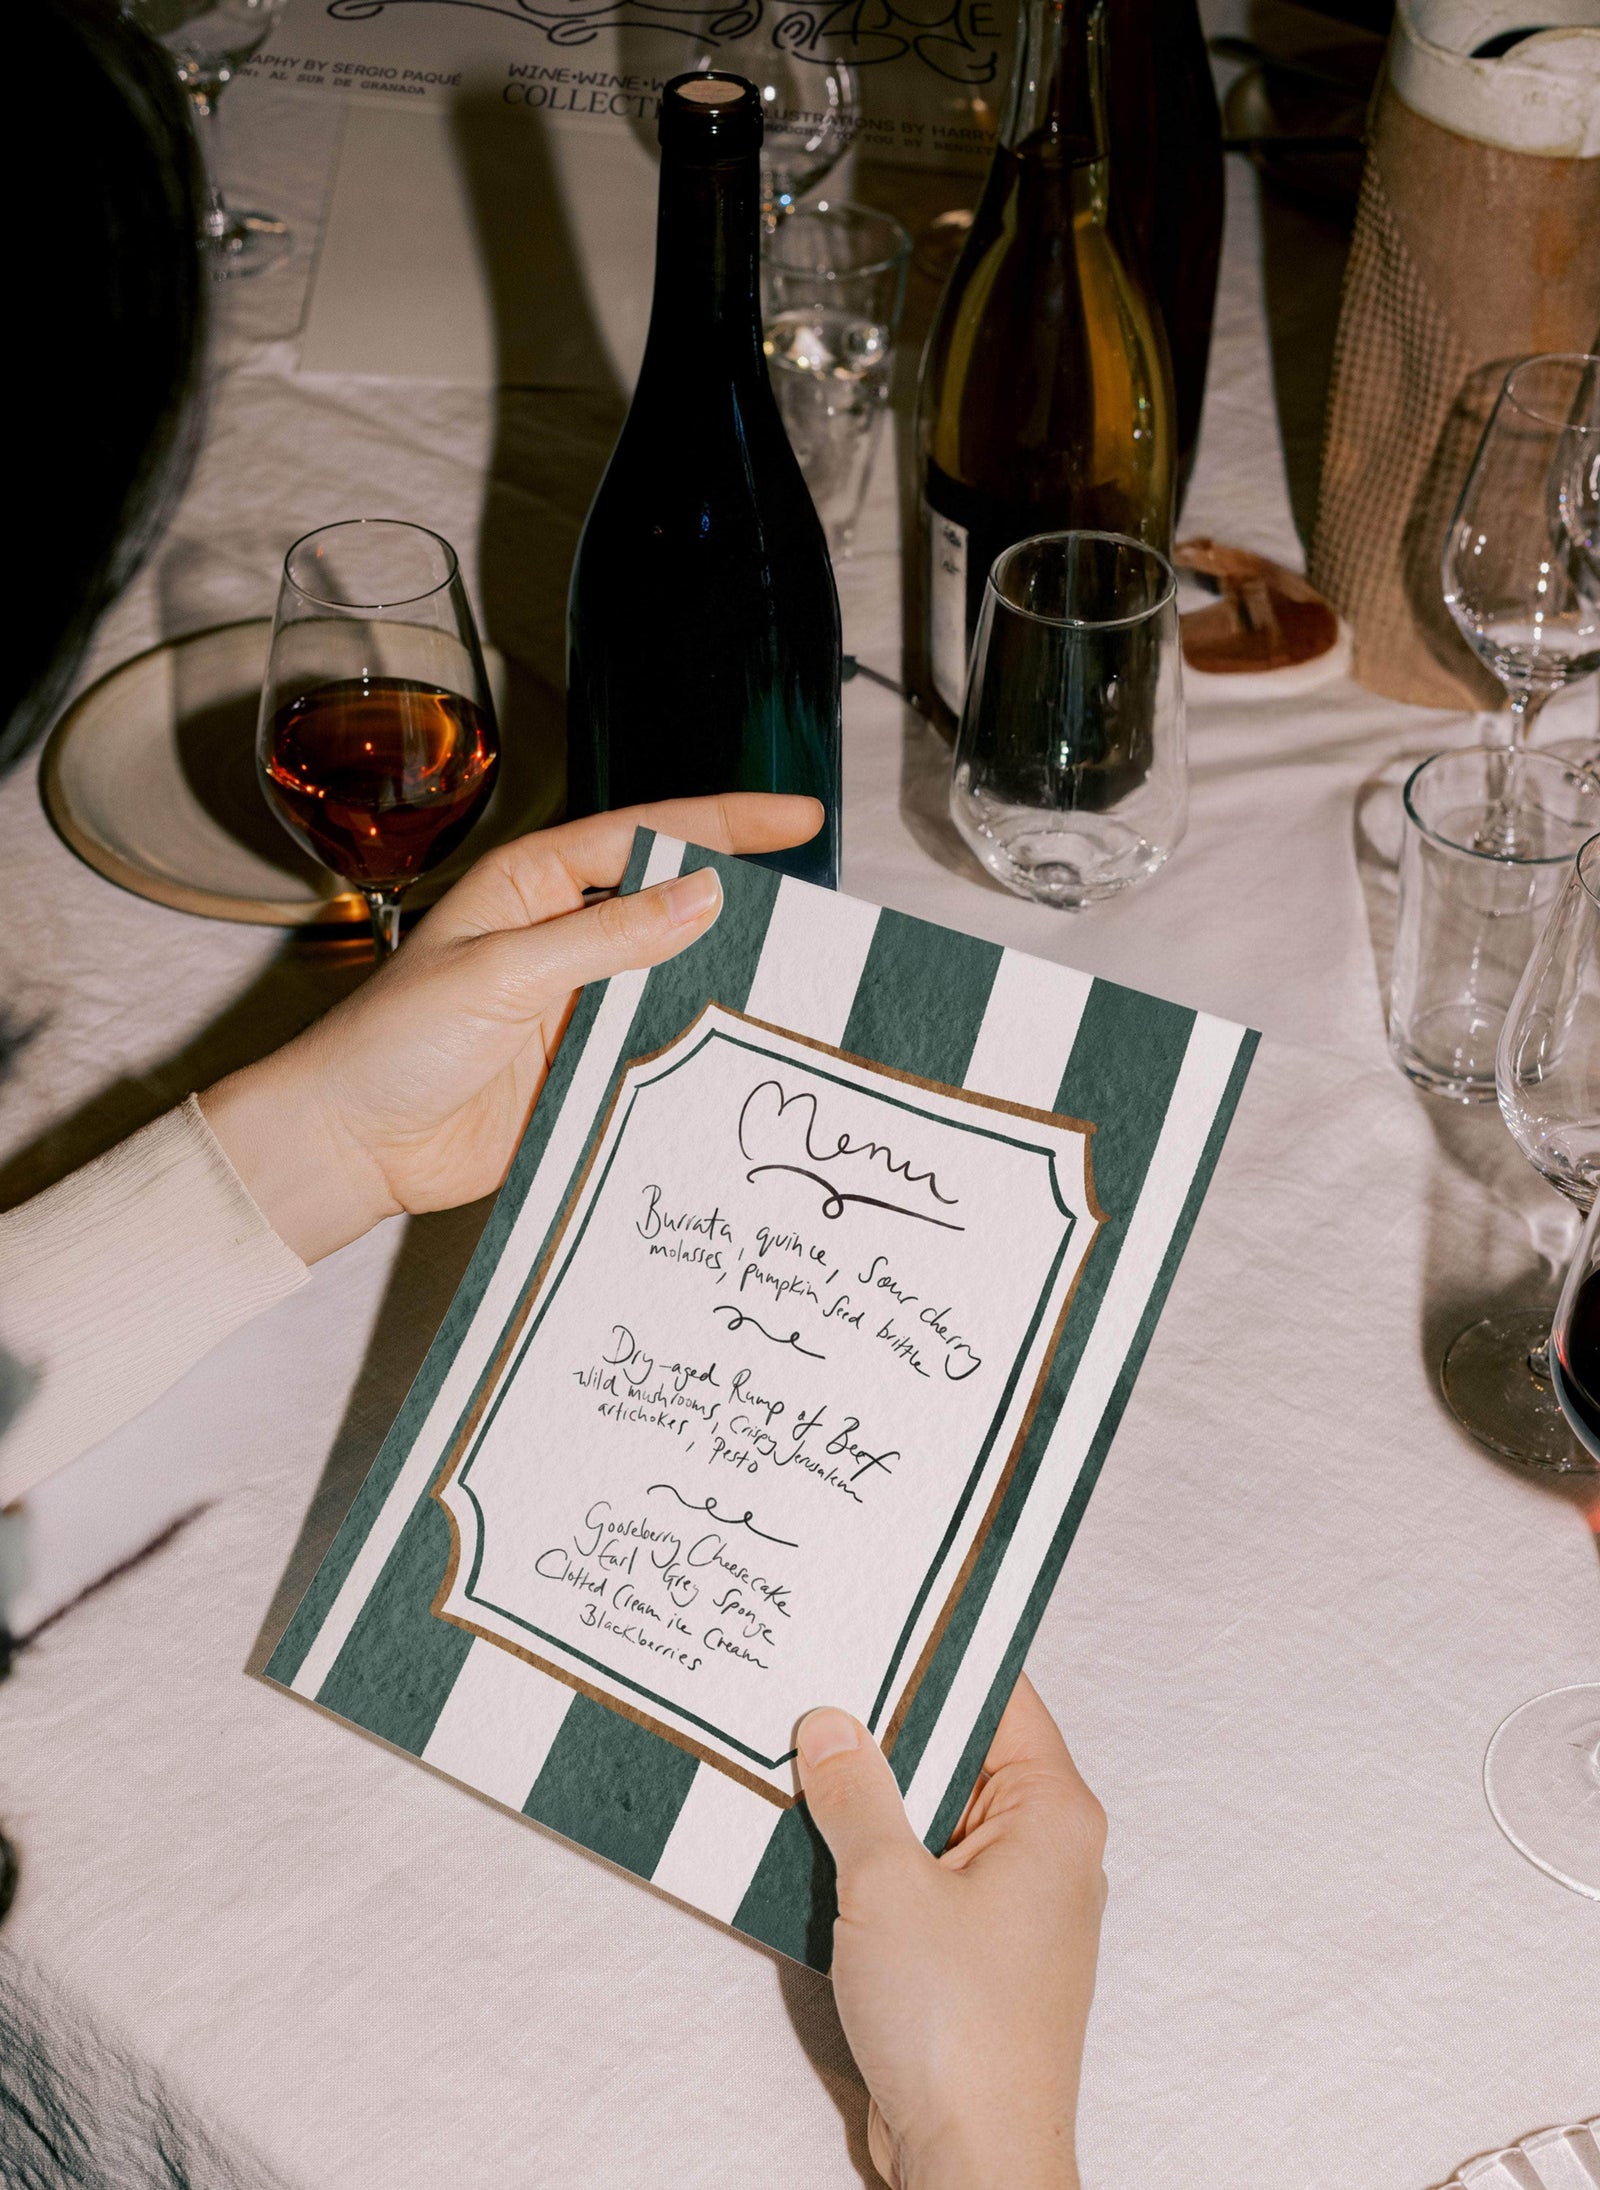 RAPHY BY SERGIO PAQUÉ
ON: AL SUR DE GRANADA
WINE•WINE•W
COLLECTI
LUSTRATIONS BY HARRY
ROUGHT TO YOU BY BENDIT
Menu
Burrata, quince, Sour cherry
molasses, pumpkin seed brittle
Dry-aged Rump of Beef
wild mushrooms, Crispy Jerusalem
artichokes, Pesto
Gooseberry Cheesecake
Earl Grey Sponge
Clotted Cream ice Cream
Blackberries